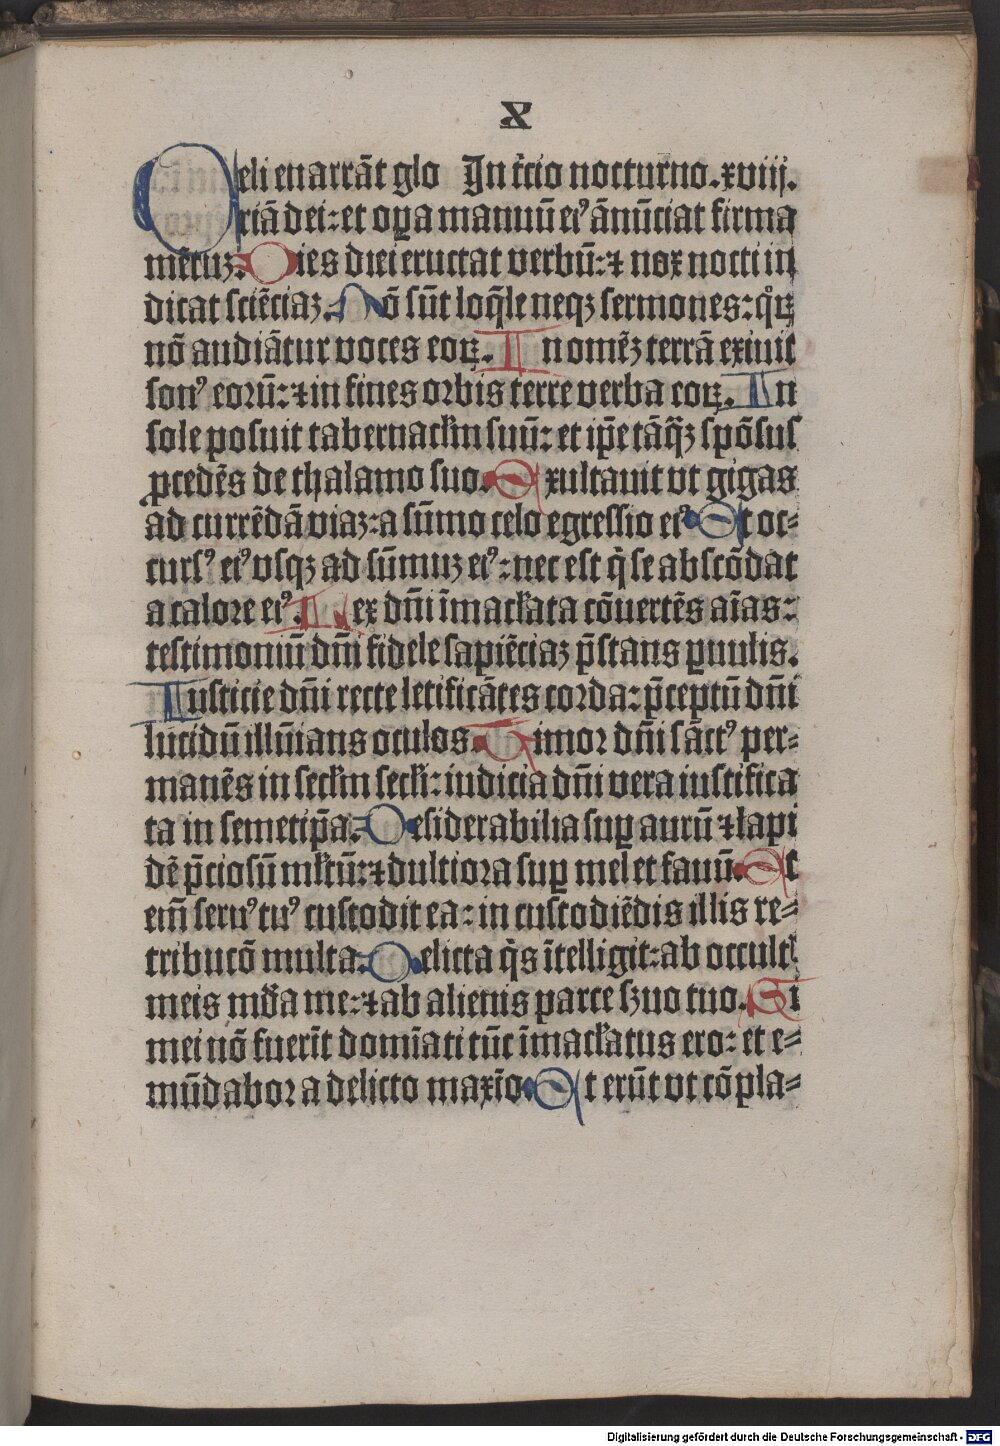 X
Celi enarrāt glo In t̄cio nocturno.xviij.
riā dei: et oꝑa manuū eiꝰ ānūciat firma
mētuꝫ. Dies diei eructat verbū: ⁊ nox nocti in
dicat sciēciaꝫ. Nō sūt loq̄le neqꝫ sermones: qͦꝝ
nō audiātur voces eoꝝ. In omēꝫ terrā exiuit
sonꝰ eorū: ⁊ in fines orbis terre verba eoꝝ. In
sole posuit tabernacl̄m suū: et ip̄e tāq̄ꝫ spōsus
ꝓcedēs de thalamo suo. Exultauit vt gigas
ad currēdā viaꝫ: a sūmo celo egressio eiꝰ. Et oc⸗
cursꝰ eiꝰ vsqꝫ ad sūmuꝫ eiꝰ: nec est q̇ se abscōdat
a calore eiꝰ. Lex dn̄i īmacl̄ata cōuertēs aīas:
testimoniū dn̄i fidele sapiēciaꝫ p̄stans ꝑuulis.
Iusticie dn̄i recte letificātes corda: p̄ceptū dn̄i
lucidū illūians oculos. Timor dn̄i sāctꝰ per⸗
manēs in secl̄m secl̄i: iudicia dn̄i vera iustifica
ta in semetip̄a. Desiderabilia suꝑ aurū ⁊ lapi
dē p̄ciosū ml̄tū: ⁊ dulciora suꝑ mel et fauū. Et
em̄ seruꝰ tuꝰ custodit ea: in custodiēdis illis re⸗
tribucō multa. Delicta q̇s ītelligit: ab occultꝭ
meis mūda me: ⁊ ab alienis parce ẜuo tuo. Si
mei nō fuerīt domīati tūc īmacl̄atus ero: et e⸗
mūdabor a delicto maxīo. Et erūt vt cōpla⸗
Digitalisierung gefördert durch die Deutsche Forschungsgemeinschaft - DFG